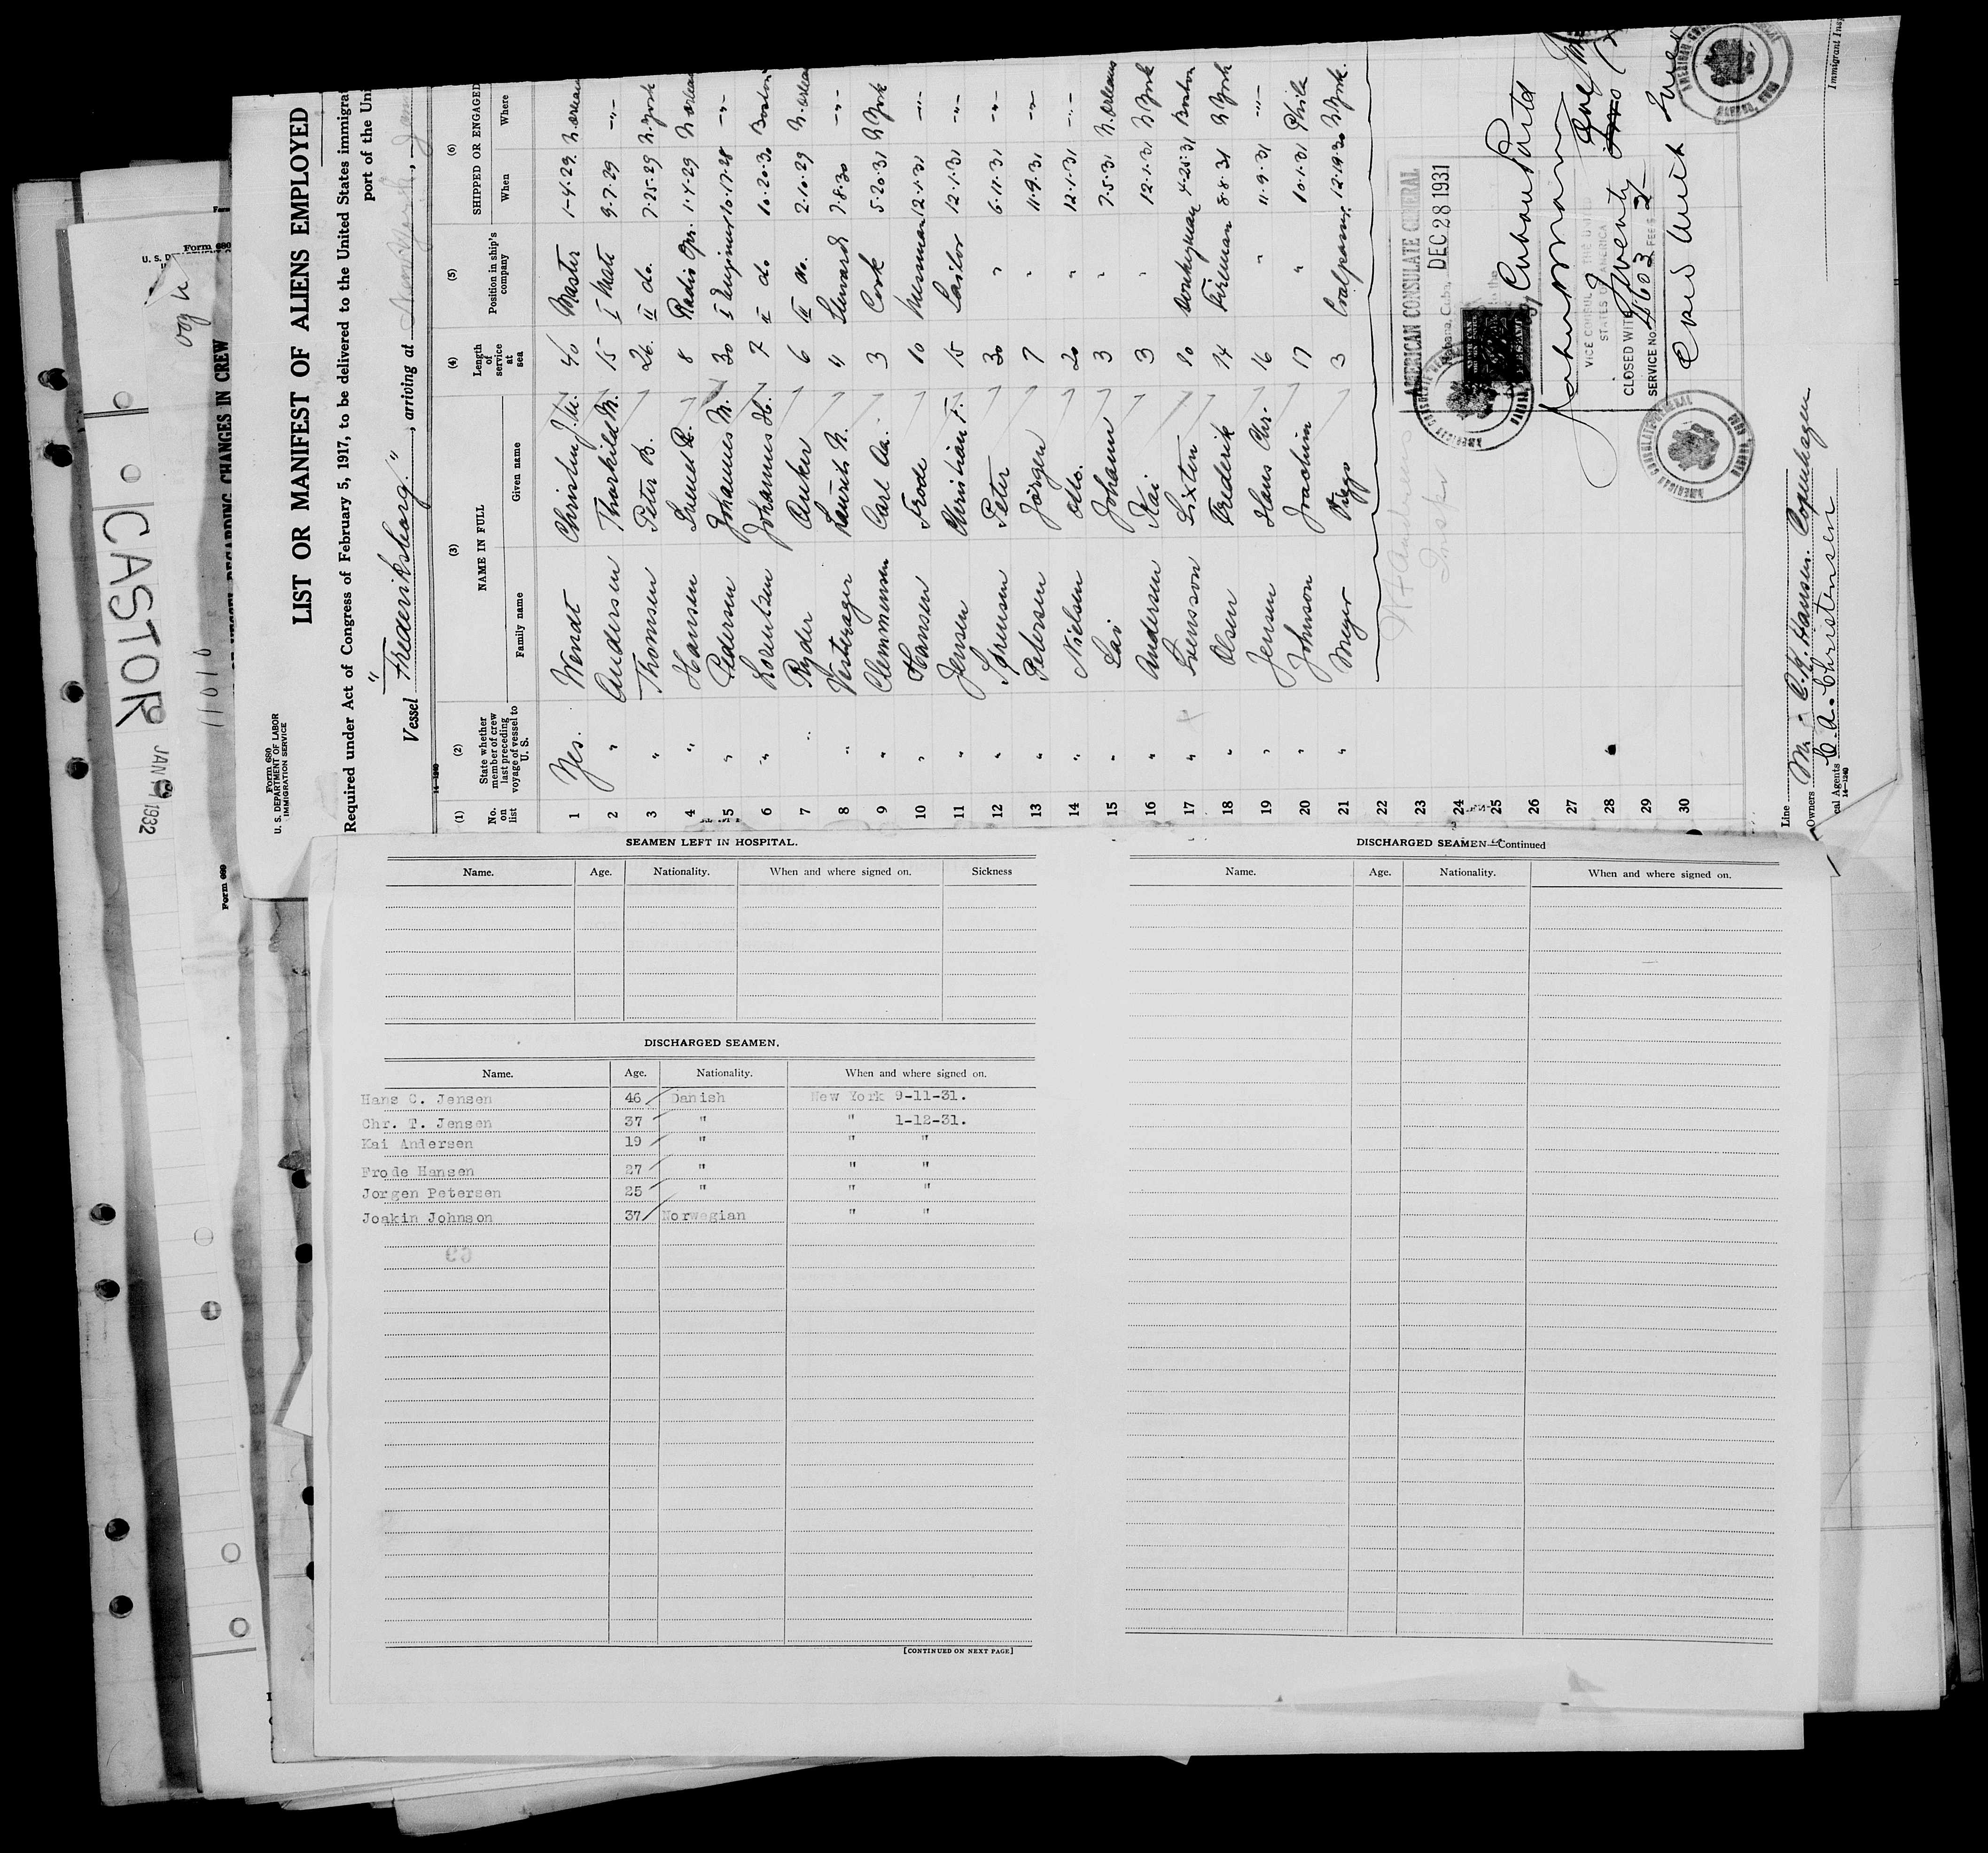 Form 680
U. S. DEPARTMENT OF LABOR
IMMIGRATION SERVICE
LIST OR MANIFEST OF ALIENS EMPLOYED
Required under Act of Congress of February 5, 1917, to be delivered to the United States immigra
port of the Uni
Vessel "Frederiksborg.", arriving at New York,
(1) (2) (3) (4) (5) (6)
No. on list
State whether member of crew last preceding voyage of vessel to U. S.
NAME IN FULL
Family name Given name
Length of service at sea
Position in ship's company
SHIPPED OR ENGAGED
When Where
1 Yes. Wendt Christian J.W. 40 Master 1-4-29. N. Orleans
2 " Andersen Thorkild M. 15 I Mate 9-7-29 -"-
3 " Thomsen Peter B. 26. II do. 7-25-29 N. York
4 " Hansen R. 8 Radio Opr. 1-4-29 N Orleans
5 " Pedersen Johannes M. 30 I Engineer 10-17-28 -"-
6 " Lorentzen Johannes H. 7 II do 10-20-30 Boston
7 " Ryder Anker 6 III do. 2-10-29 N. Orleans
8 " Vesterager Laurits N. 4 Steward 7-8-30 -"-
9 " Clemmensen Carl Aa. 3 Cook 5-20-31 N York
10 " Hansen Frode 10 Messman 12-1-31 -"-
11 " Jensen Christian T. 15 Sailor 12-1-31 -"-
12 " Sørensen Peter 30 " 6-11-31 -"-
13 " Petersen Jörgen 7 " 11-9-31 -"-
14 " Nielsen Otto. 20 " 12-1-31 -"-
15 " Lai Johann 3 " 7-5-31 N. Orleans
16 " Andersen Kai 3 " 12-1-31 N York
17 " Svensson Sixten 10 Donkeyman 4-25-31 Boston
18 " Olsen Frederik 14 Fireman 8-8-31 N York
19 " Jensen Hans Chr. 16 " 11-9-31 -"-
20 " Johnson Joachim 17 " 10-1-31 Phila
21 " Meyer Viggo 3 Coalpasser. 12-19-30 N. York.
22
23
24
25
26
27
28
29
30
AMERICAN CONSULATE GENERAL
Habana, Cuba, DEC 28 1931
Cuban Ports
VICE CONSUL OF THE UNITED
STATES OF AMERICA
CLOSED WITH Twenty
SERVICE NO. 4603 FEES 2
Crew with
Line
Owners C.K. Hansen. Copenhagen
cal Agents C. A. Christensen
14-1240
Immigrant Insp
CASTOR
JAN 1932
Form 680
Form 689
REGARDING CHANGES IN CREW
SEAMEN LEFT IN HOSPITAL.
Name. Age. Nationality. When and where signed on. Sickness
DISCHARGED SEAMEN.
Name. Age. Nationality. When and where signed on.
Hans C. Jensen 46 Danish New York 9-11-31.
Chr. T. Jensen 37 " " 1-12-31.
Kai Andersen 19 " " "
Frode Hansen 27 " " "
Jorgen Petersen 25 " " "
Joakin Johnson 37 Norwegian " "
[CONTINUED ON NEXT PAGE]
DISCHARGED SEAMEN—Continued
Name. Age. Nationality. When and where signed on.